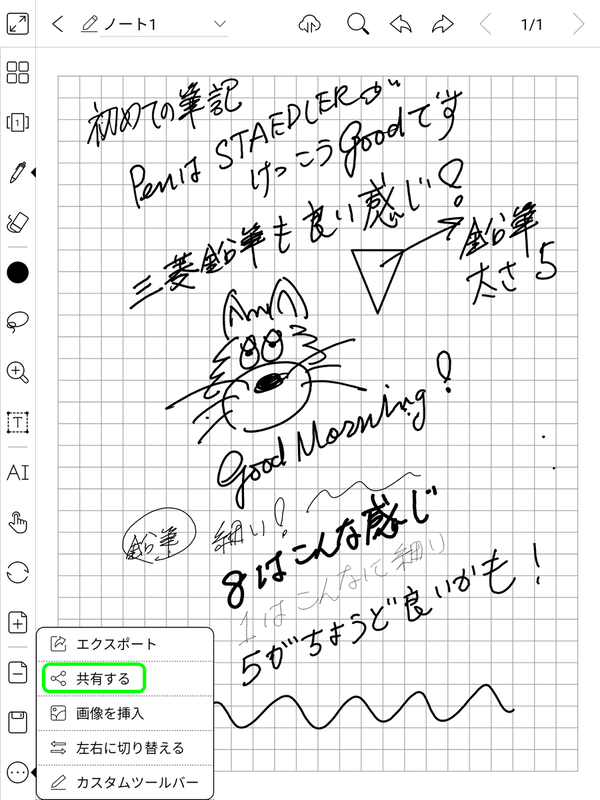 ノート1
1/1
初めての筆記
Penは STAEDLERが
けっこうGoodです
三菱鉛筆も良い感じ!
鉛筆
太さ 5
Good Morning!
鉛筆 細い!
8はこんな感じ
1はこんなに細い
5がちょうど良いかも!
T
AI
エクスポート
共有する
画像を挿入
左右に切り替える
カスタムツールバー